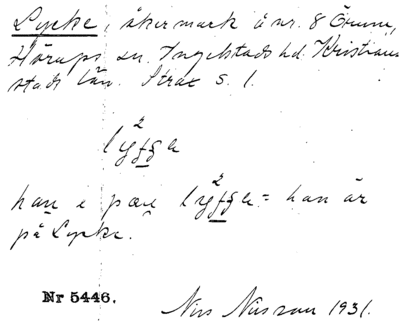 Lycke, åkermark å nr. 8 Örum,
Hörups sn. Ingelstads hd. Kristian
stads län. Strax S. 1.
han e pæ = han är
på Lycke.
Nr 5446.
Nils Nilsson 1931.